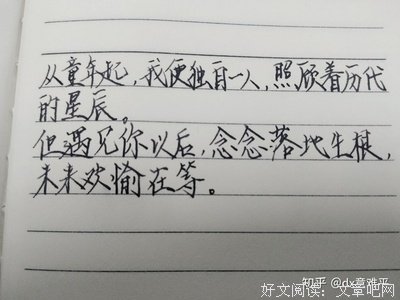 从童年起，我便独自一人，照顾着历代
的星辰。
但遇见你以后，念念落地生根，
未来欢愉在等。
知乎 @dx意难平
好文阅读：文章吧网